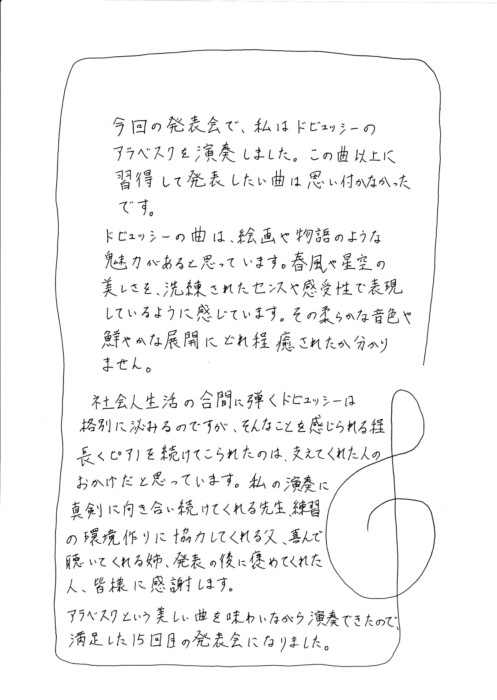 今回の発表会で、私はドビュッシーの
アラベスクを演奏しました。この曲以上に
習得して発表したい曲は思い付かなかった
です。
ドビュッシーの曲は、絵画や物語のような
魅力があると思っています。春風や星空の
美しさを、洗練されたセンスや感受性で表現
しているように感じています。その柔らかな音色や
鮮やかな展開にどれ程癒されたか分かり
ません。
社会人生活の合間に弾くドビュッシーは
格別に沁みるのですが、そんなことを感じられる程
長くピアノを続けてこられたのは、支えてくれた人の
おかげだと思っています。私の演奏に
真剣に向き合い続けてくれる先生、練習
の環境作りに協力してくれる父、喜んで
聴いてくれる姉、発表の後に褒めてくれた
人、皆様に感謝します。
アラベスクという美しい曲を味わいながら演奏できたので、
満足した15回目の発表会になりました。